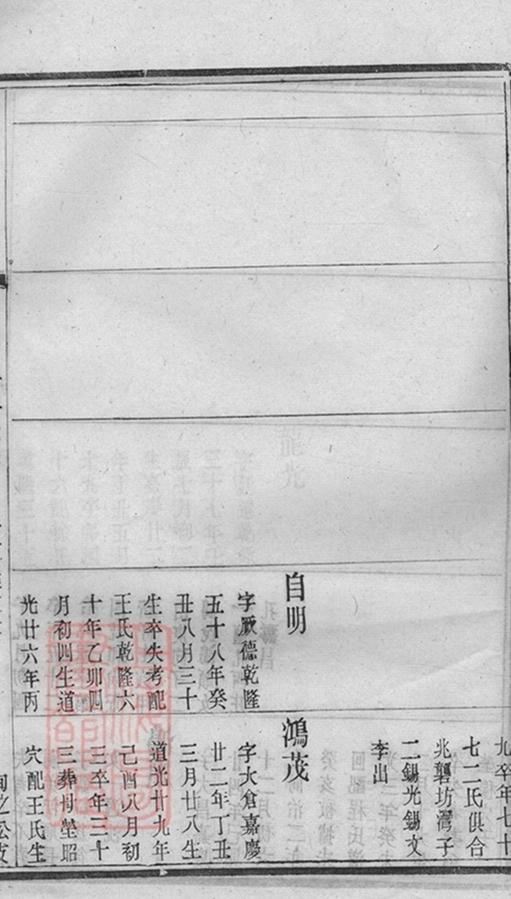 自明
字厥德乾隆
五十八年癸
丑八月三十
生卒失考配
王氏乾隆六
十年乙卯四
月初四生道
光廿六年丙
九卒年七十
七二氏俱合
兆龔坊灣子
二錫光錫文
李出
鴻茂
字大倉嘉慶
廿二年丁丑
三月廿八生
道光廿九年
己酉八月初
三卒年三十
三葬母塋昭
穴配王氏生